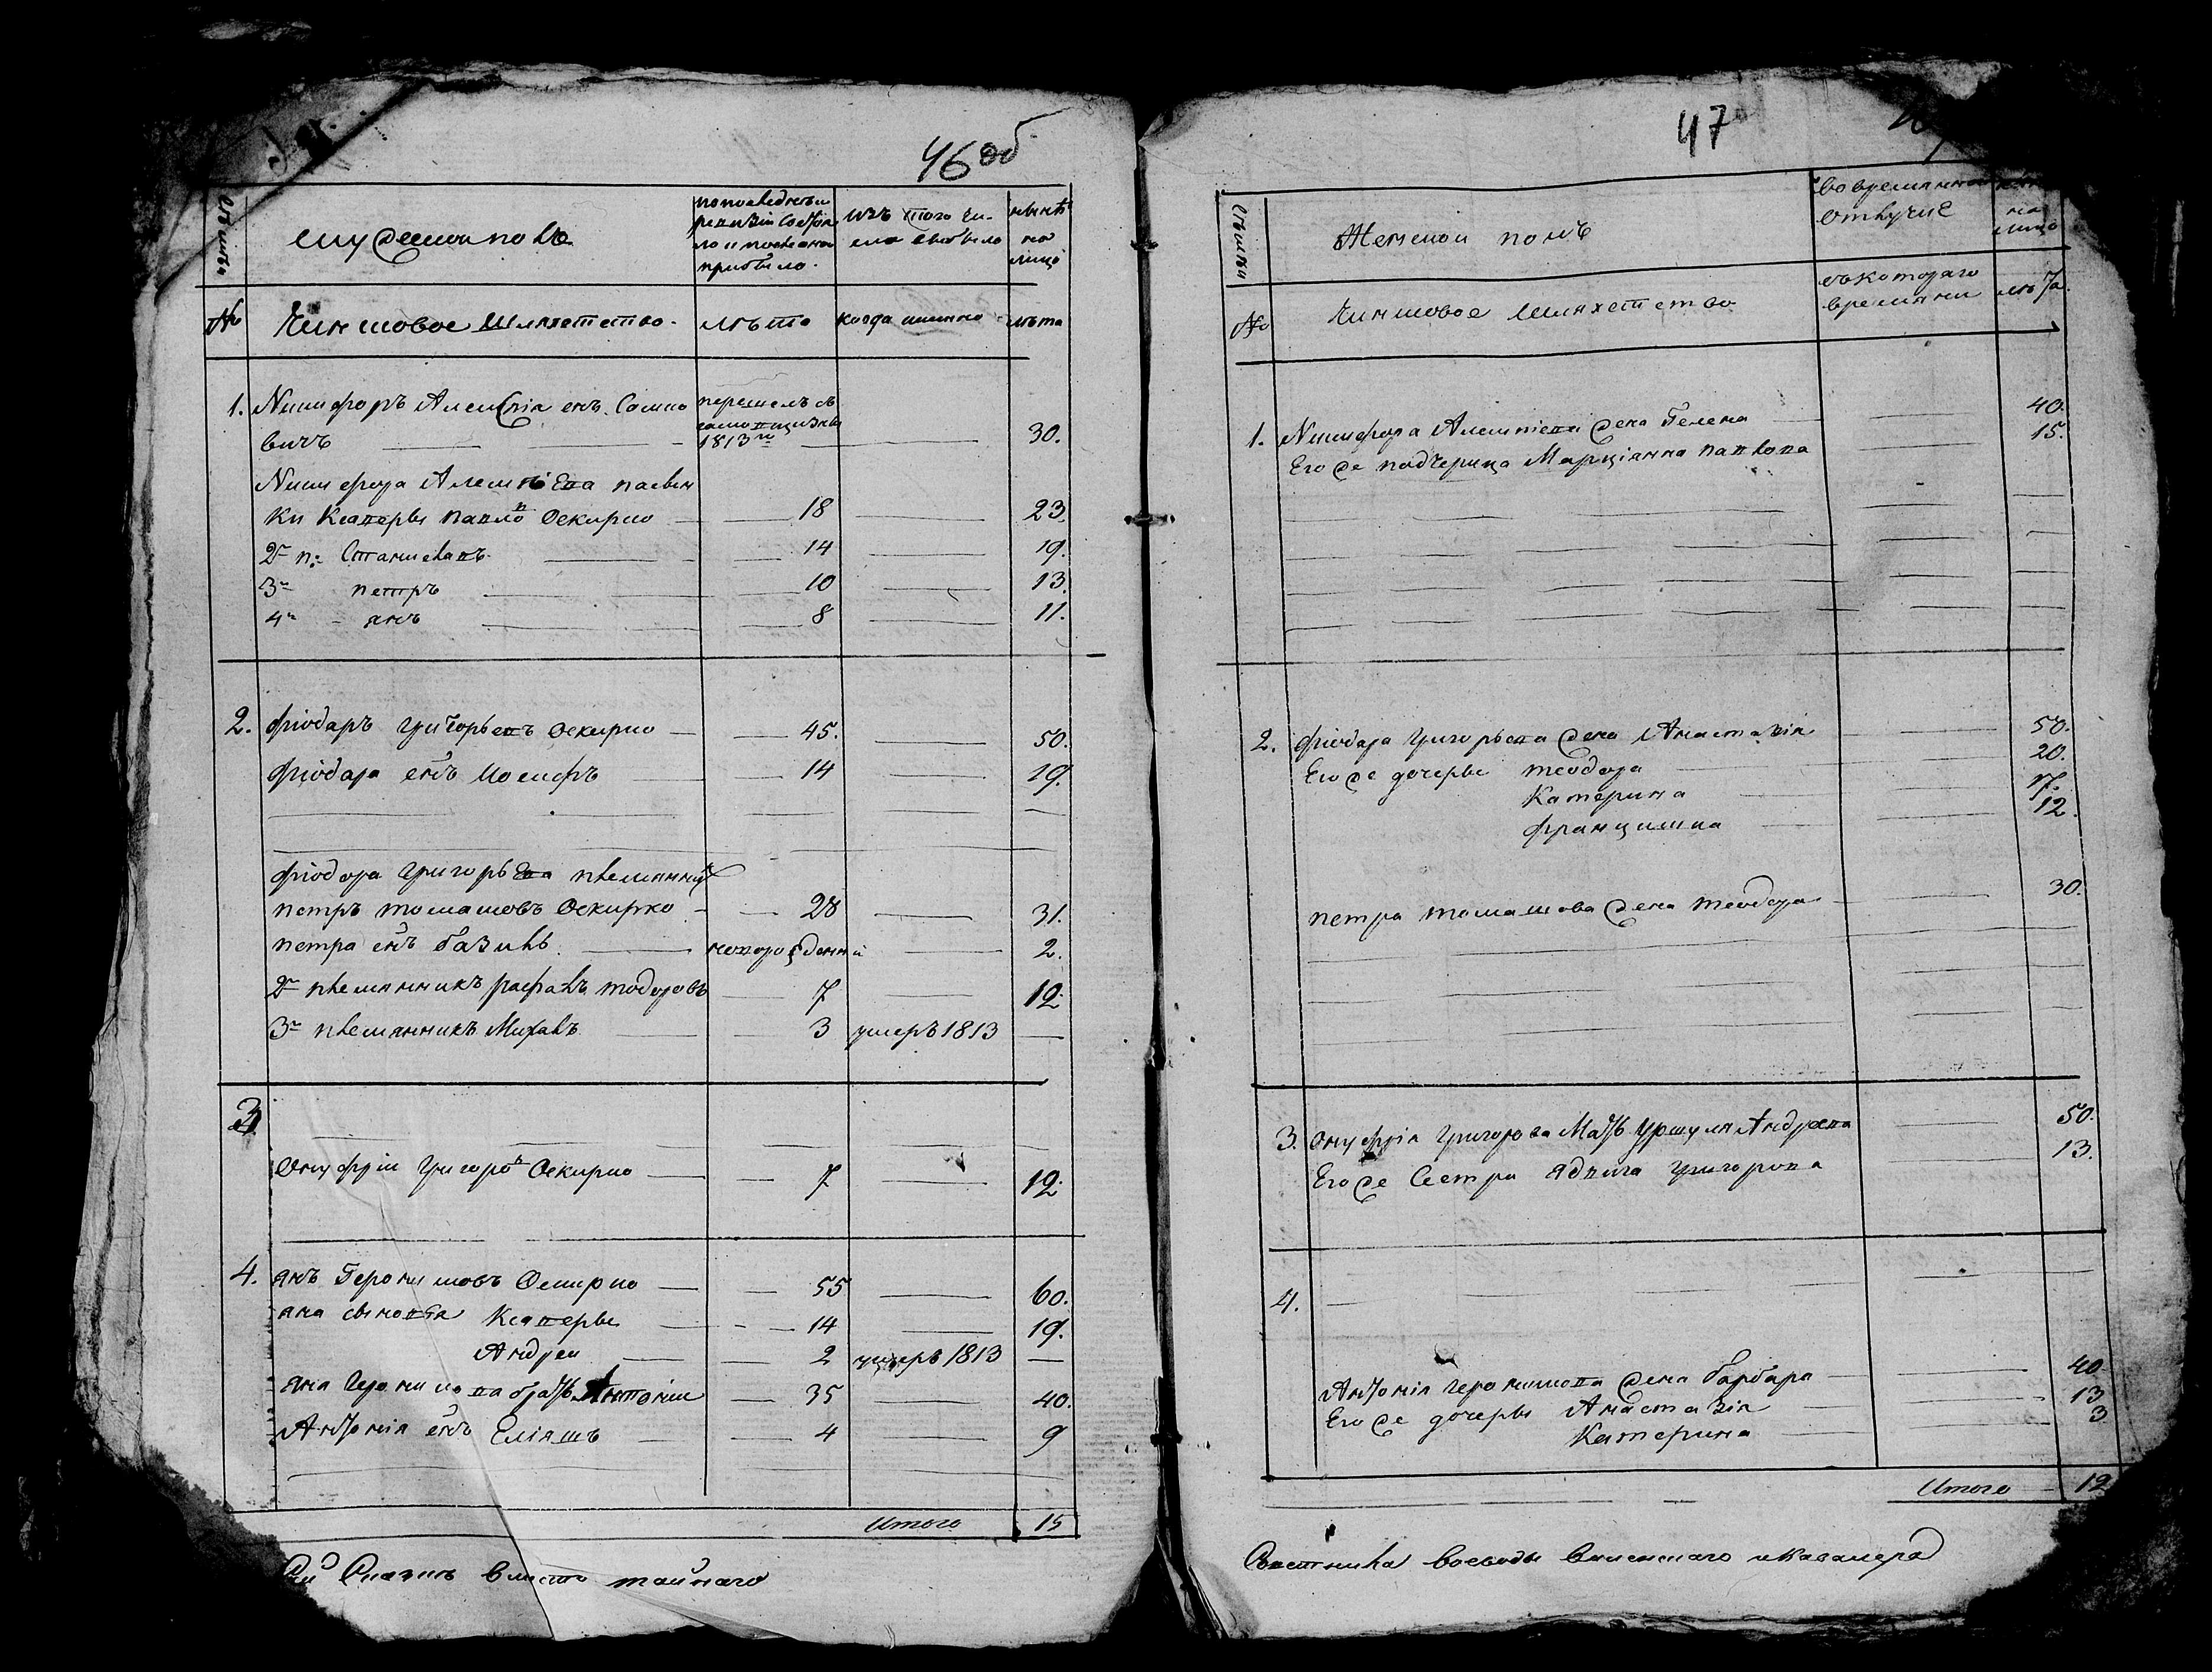 46 об
Семьи
мужескои полъ
по последнеи
ревизіи состоя
ло и после оной
прибыло.
изъ того чи-
сла выбыло
ныне
на
лицо
№
Чиншовое шляхетство.
лета
когда именно
лета
1. Никифоръ Алексѣя снъ. Сомко
вичъ
перешелъ съ
1813го
30.
Никифора пасын
ки Ксаверы Павло Оскирко 18 23.
2й п: Станиславъ 14 19.
3й петръ 10 13.
4й янъ 8 11.
2. Фіодаръ Григорьевъ Оскирко 45. 50.
Фіодара снъ Иосифъ 14 19.
Фіодора Григорьева племянники
петръ томашовъ Оскирко 28 31.
петра снъ базиль новорожденни 2.
2й племянникъ рафалъ тодоровъ 7 12.
3й племянникъ Михалъ 3 умеръ 1813
3
Онуфріи Григоровъ Оскирко 7 12.
4. янъ Геронимовъ Оскирко 55 60.
яна сыновья Ксаверы 14 19.
Андреи 2 умеръ 1813
яна Геронимова братъ Антоніи 35 40.
Антонія снъ Еліяшъ 4 9
Итого 15
Сказки вместо тайнаго
47
Семьи
Женскои полъ
во временнои
отлучке
на
лицо
№
Чиншовое шляхетство
съ котораго
времяни
лета.
1. Никифора жена Гелена 40.
Его же подчерица Марціянна павлова 15.
2. Фіодара Григорьева жена Анастазія 50.
Его же дочеры теодора 20.
Катерина 17.
Францишка 12.
петра томашова жена теодора 30.
3. Онуфрія Григорова Мать Уршуля Андреева 50.
Его же Сестра Ядвига Григорова 13.
4.
Антонія Геронимова жена барбара 40
Его же дочеры Анастазія 13
Катерина 3
Итого 12
Советника воеводы виленскаго и кавалера